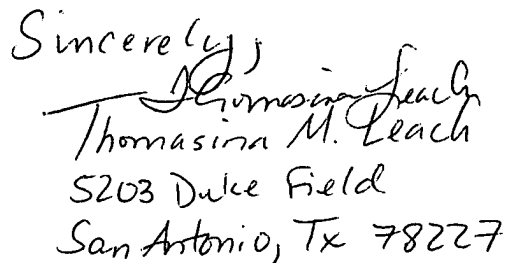 Sincerely,
Thomasina Leach
Thomasina M. Leach
5203 Duke Field
San Antonio, Tx 78227